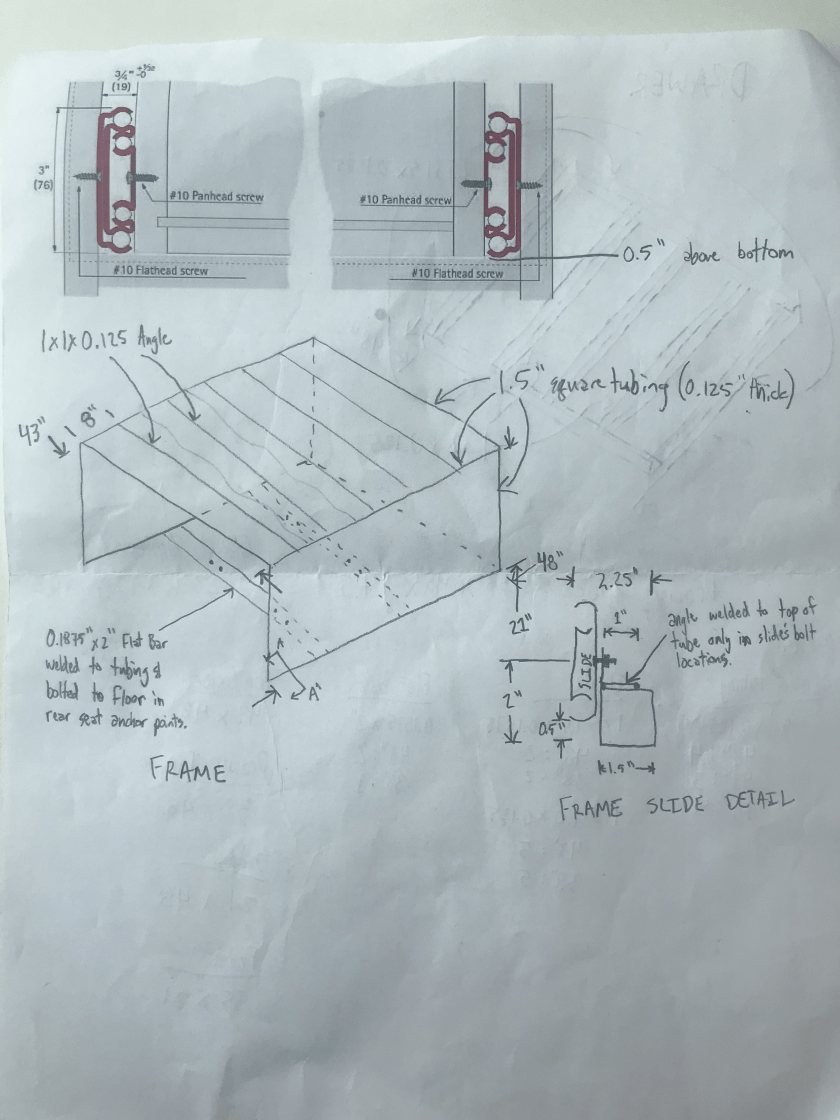 DRAWER
3/4" +1/50 -0
(19)
3"
(76)
#10 Panhead screw
#10 Panhead screw
#10 Flathead screw
#10 Flathead screw
0.5" above bottom
1x1x0.125 Angle
1.5" square tubing (0.125" thick)
43"
8"
48"
21"
0.1875" x 2" Flat Bar
welded to tubing &
bolted to floor in
rear seat anchor points.
A
A"
FRAME
2.25"
1"
angle welded to top of
tube only in slide's bolt
locations.
SLIDE
2"
0.5"
1.5"
FRAME SLIDE DETAIL